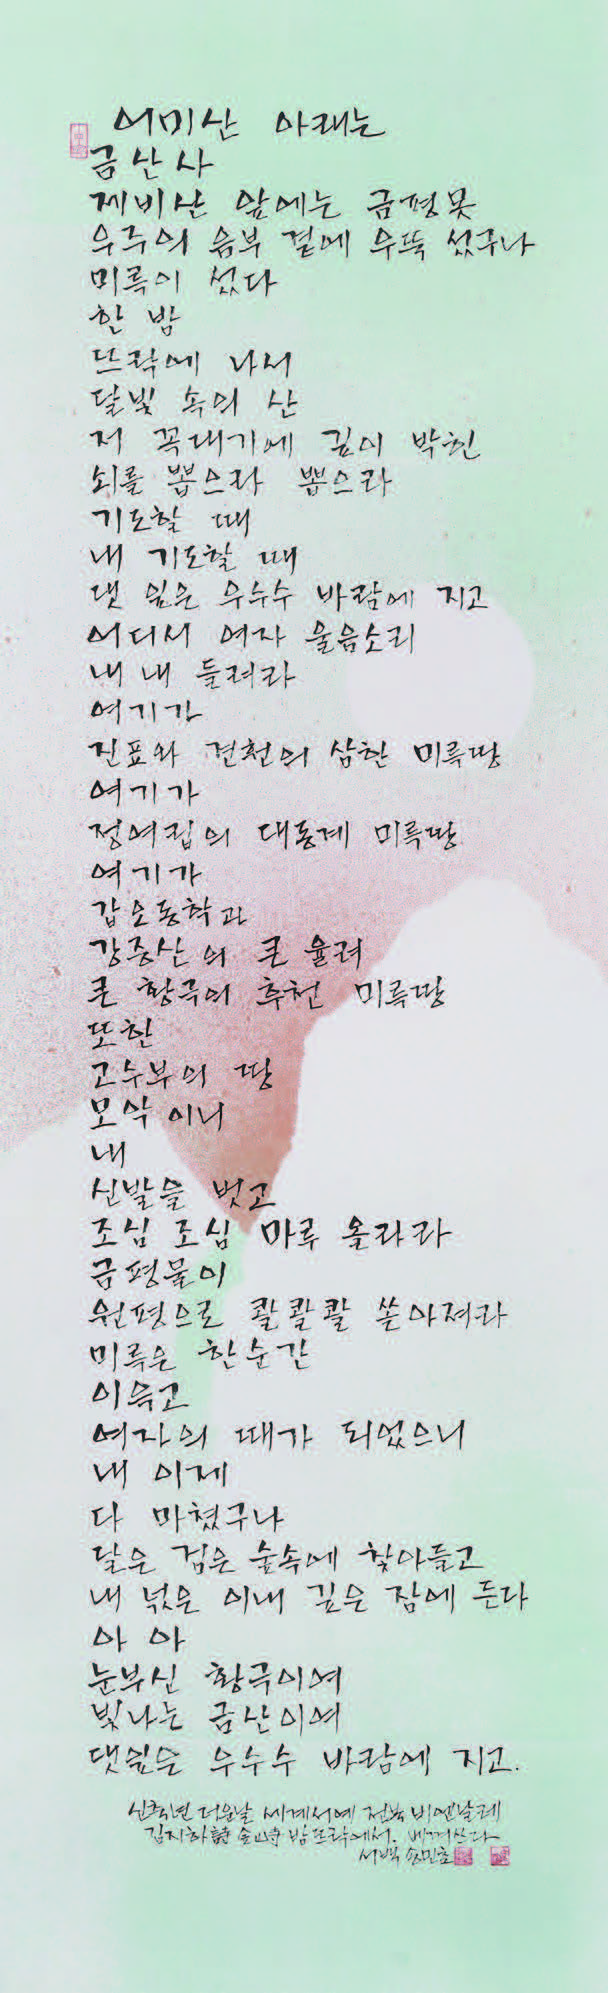 어미산 아래는
금산사
제비산 앞에는 금평못
우주의 음부 곁에 우뚝 섰구나
미륵이 섰다
한 밤
뜨락에 나서
달빛 속의 산
저 꼭대기에 깊이 박힌
쇠를 뽑으라 뽑으라
기도할 때
내 기도할 때
댓 잎은 우수수 바람에 지고
어디서 여자 울음소리
내 내 들려라
여기가
진표와 견훤의 삼한 미륵땅
여기가
정여립의 대동계 미륵땅
여기가
갑오동학과
강증산의 큰 율려
큰 황극의 후천 미륵땅
또한
고수부의 땅
모악이니
내
신발을 벗고
조심 조심 마루 올라라
금평물이
원평으로 콸콸콸 쏟아져라
미륵은 한순간
이윽고
여자의 때가 되었으니
내 이제
다 마쳤구나
달은 검은 숲속에 찾아들고
내 넋은 이내 깊은 잠에 든다
아 아
눈부신 황극이여
빛나는 금산이여
댓잎은 우수수 바람에 지고.
신축년 더운날 세계서예 전북 비엔날레
김지하 詩 金山寺 밤 뜨락에서. 베껴쓰다